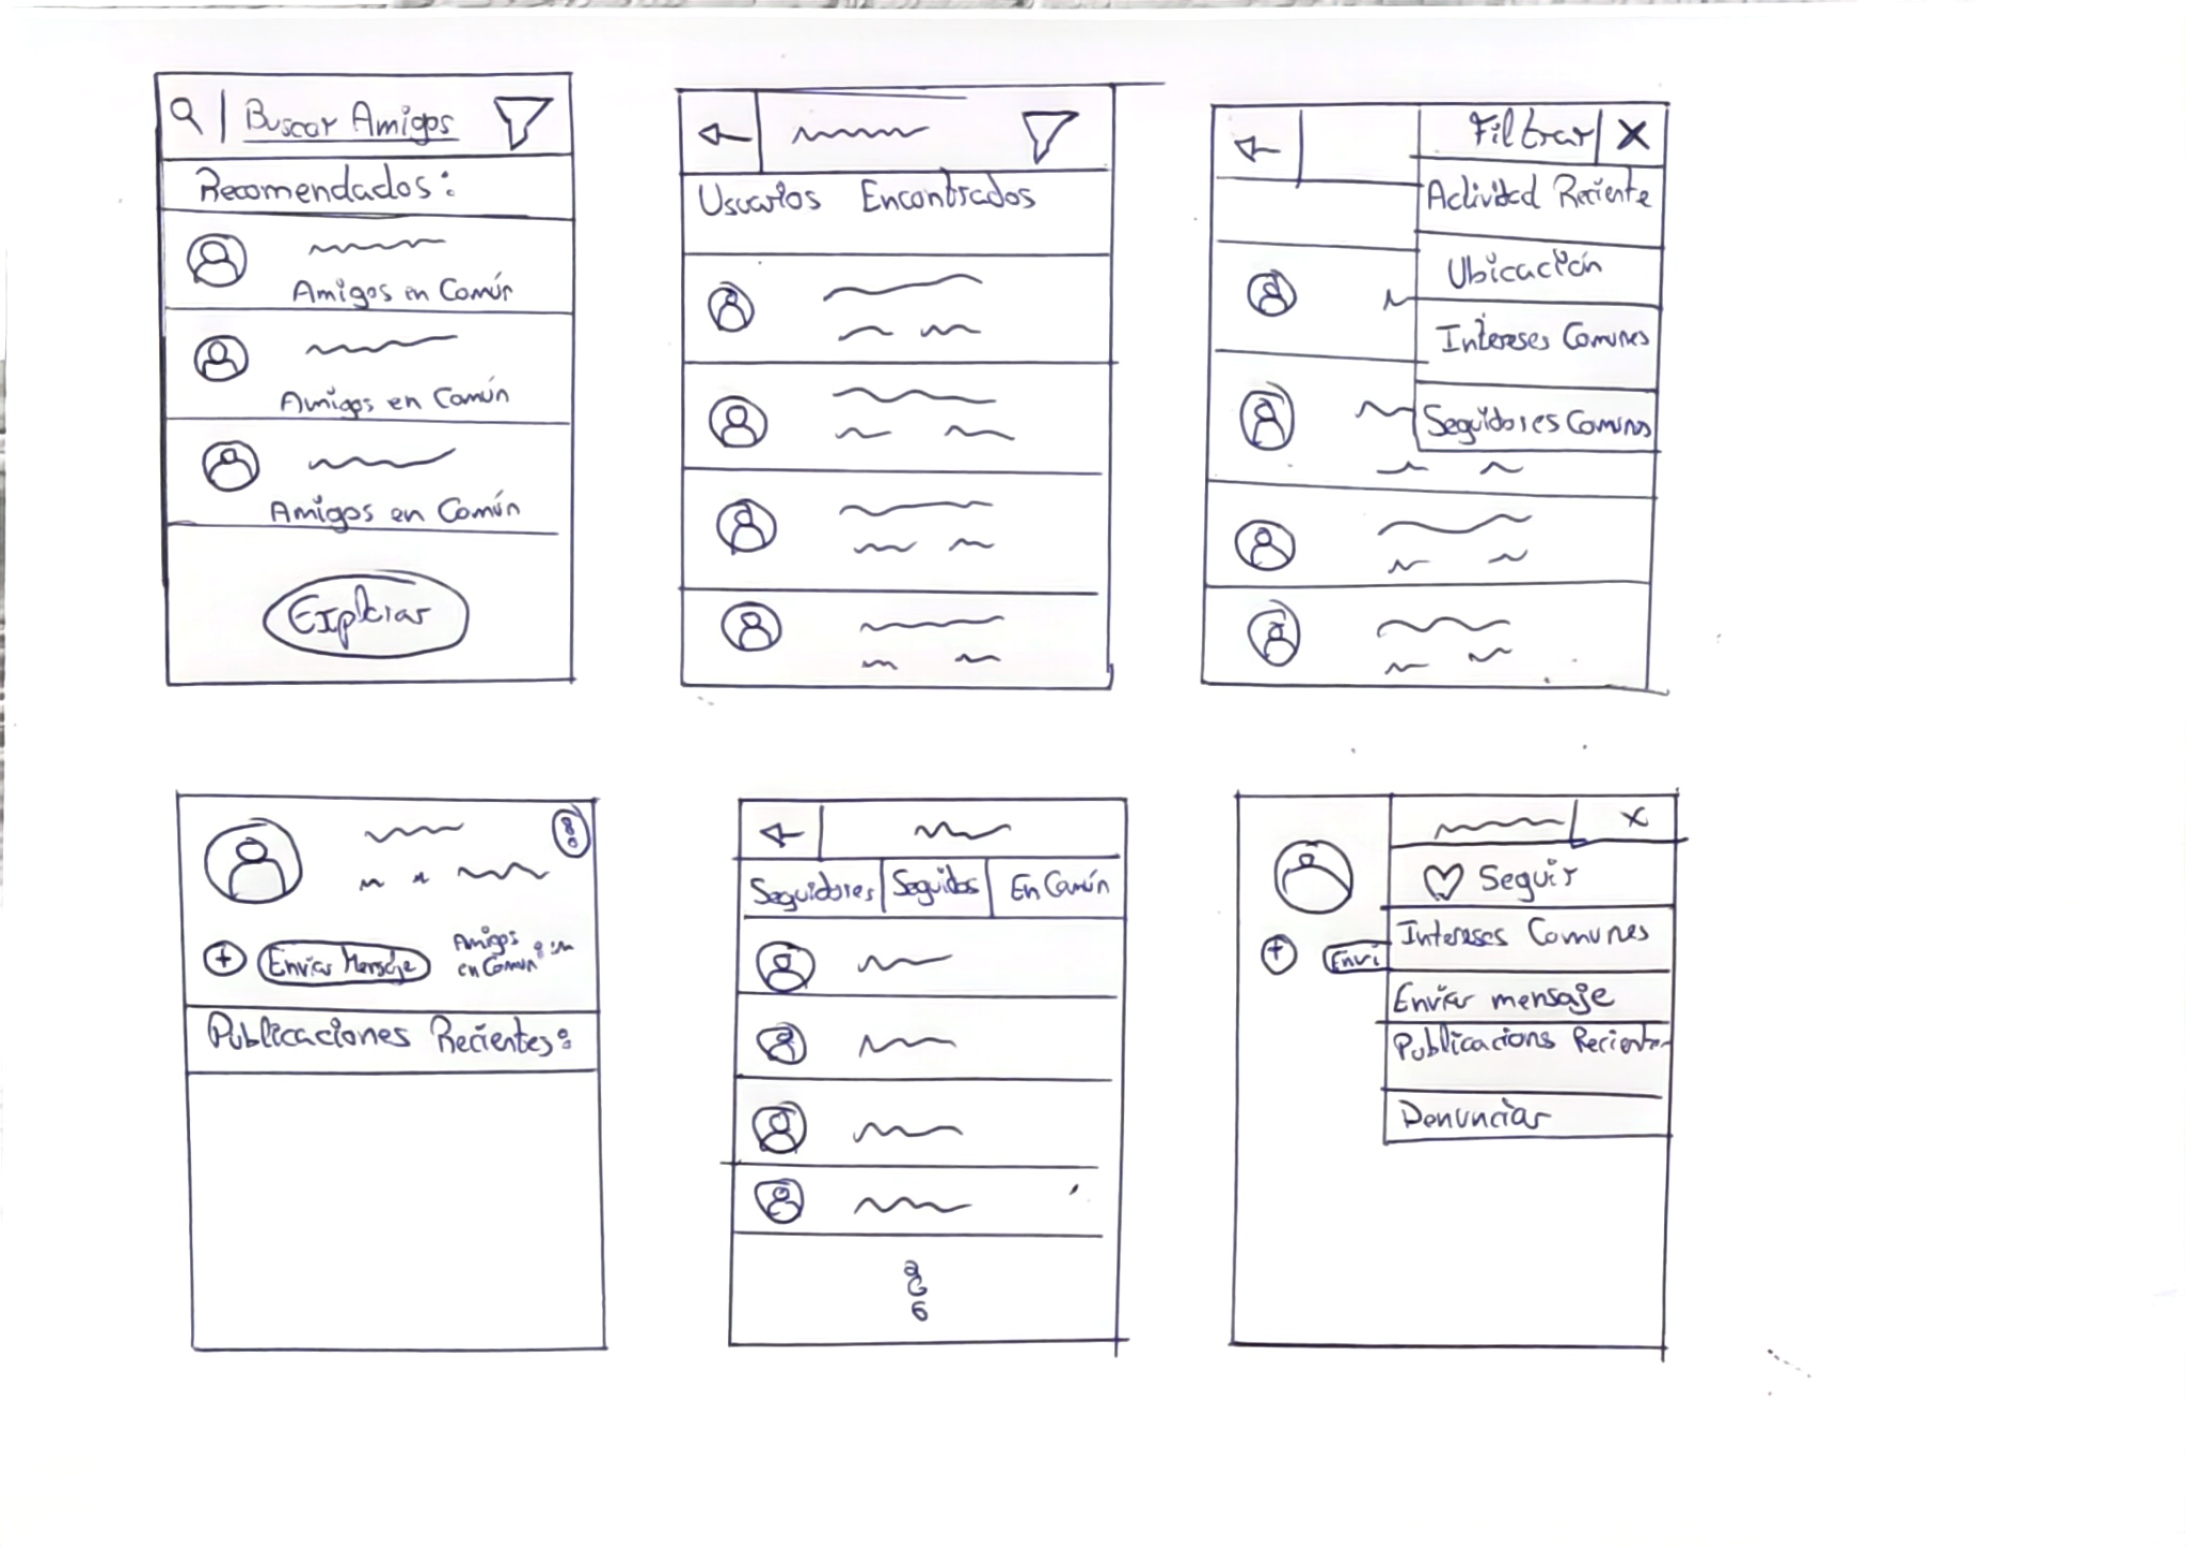 Buscar Amigos
Recomendados:
Amigos en Común
Amigos en Común
Amigos en Común
Explorar
Usuarios Encontrados
Filtrar X
Actividad Reciente
Ubicación
Intereses Comunes
Seguidores Comunes
Enviar Mensaje
Amigos
en Común
Publicaciones Recientes:
Seguidores Seguidos En Común
X
Seguir
Intereses Comunes
Envi
Enviar mensaje
Publicacions Recientes
Denunciar